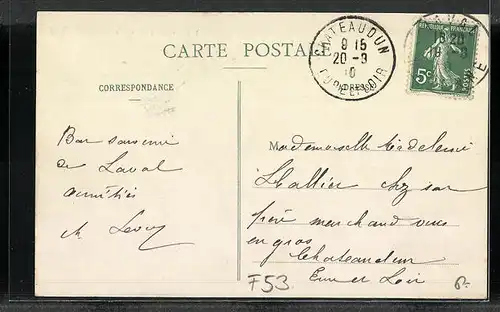 CARTE POSTALE
CHATEAUDUN
9 15
20 - 9
10
EURE-ET-LOIR
REPUBLIQUE FRANÇAISE
5c
CORRESPONDANCE
ADRESSE
Bon souvenir
de Laval
amitiés
Mademoiselle
Lhallier chez son
père marchand vins
en gros
Chateaudun
Eure et Loir
F53